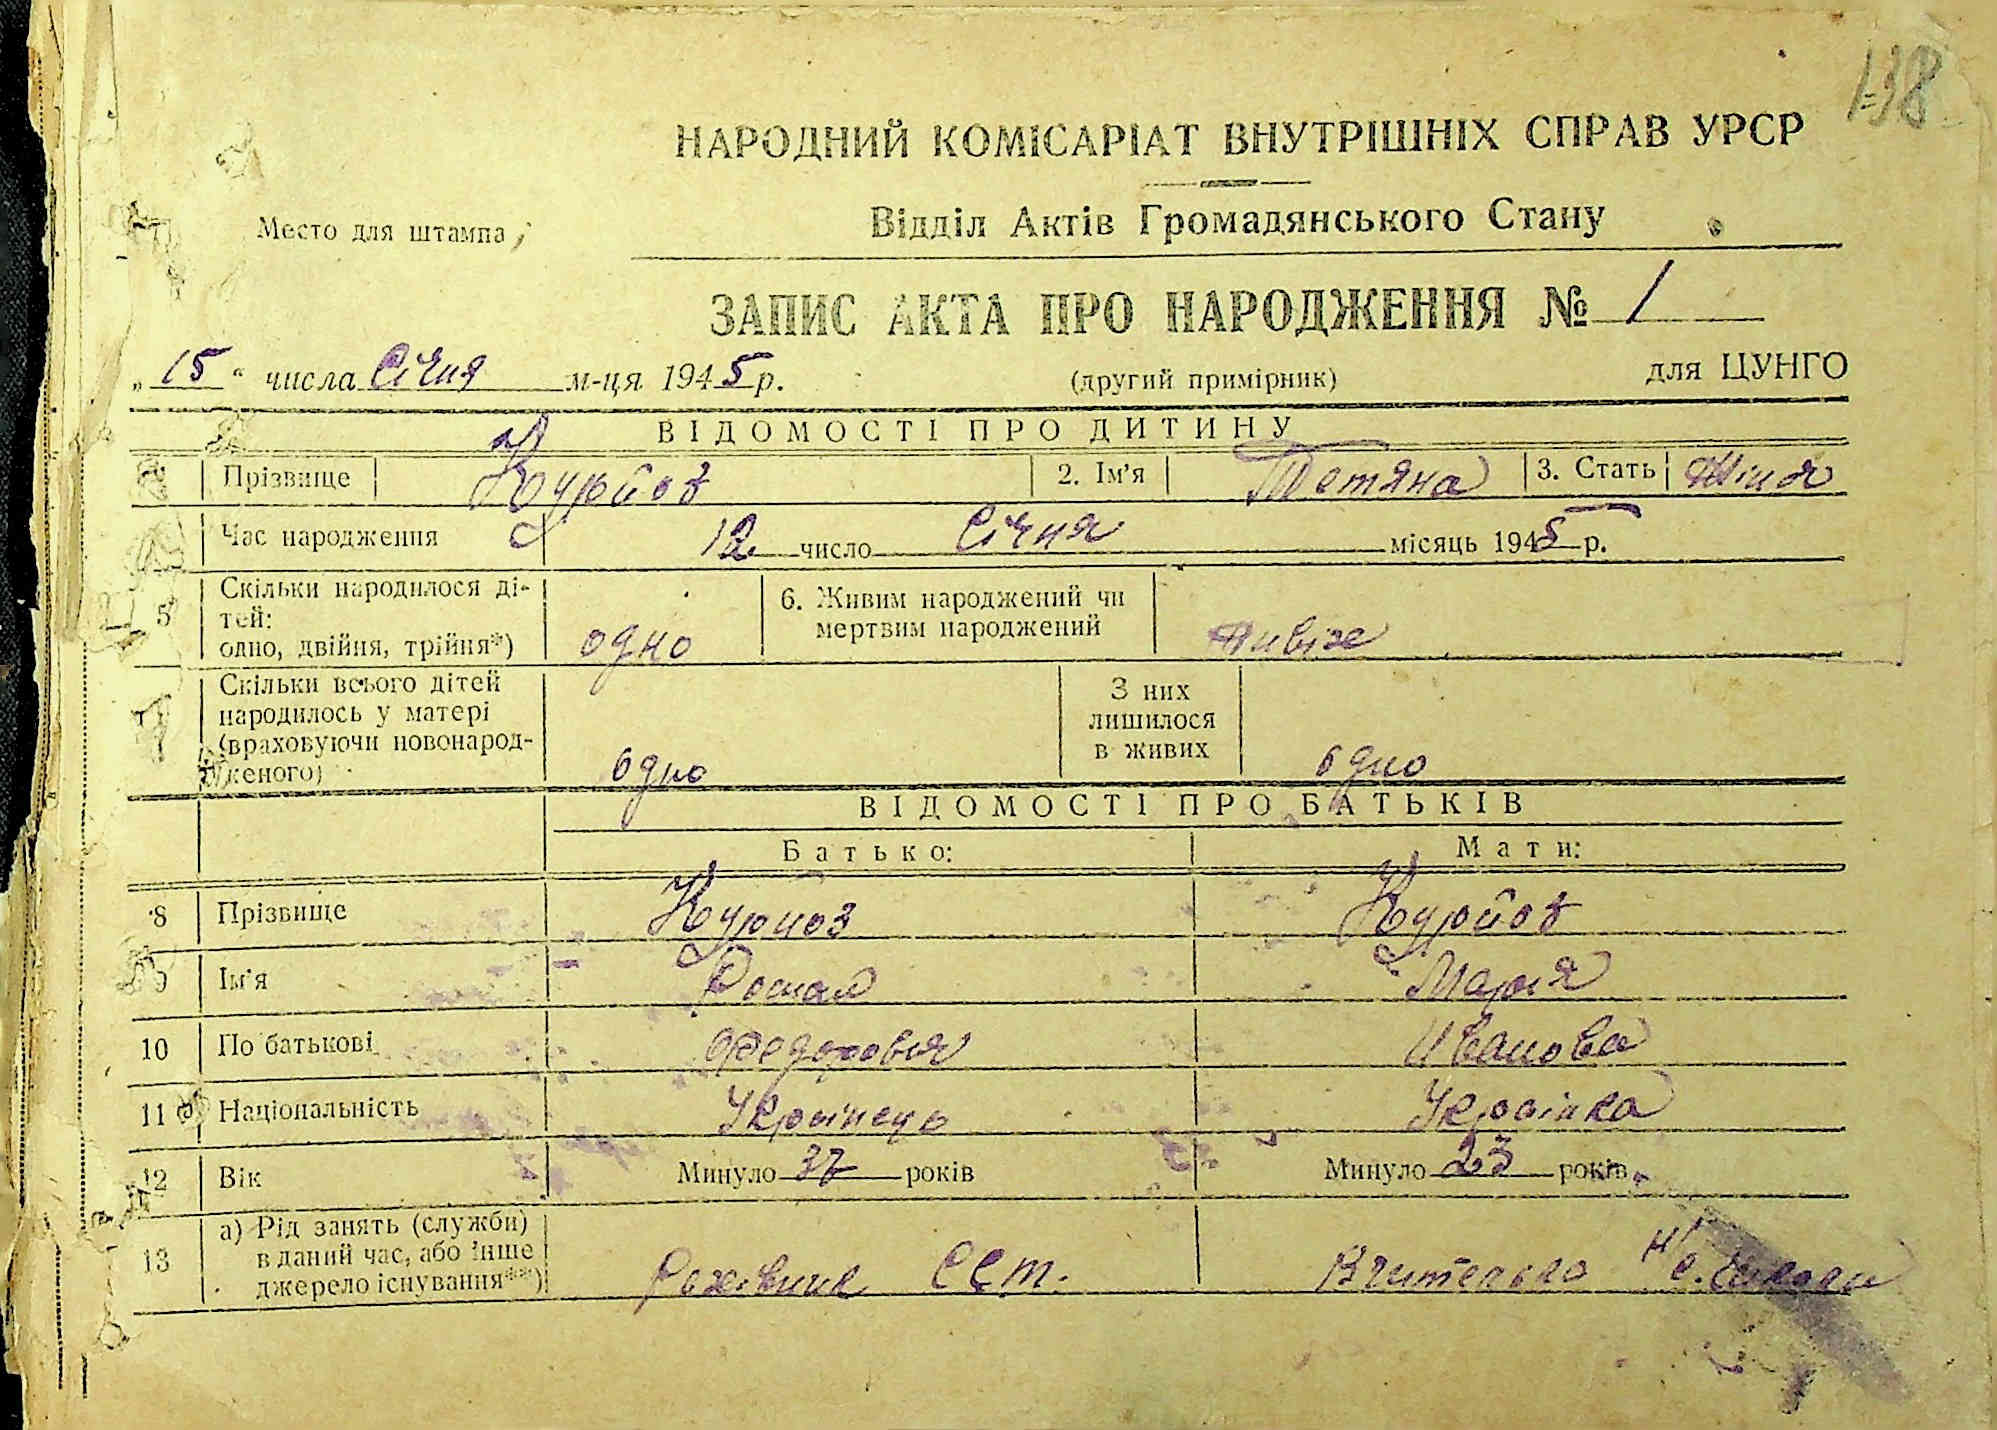 138
НАРОДНИЙ КОМІСАРІАТ ВНУТРІШНІХ СПРАВ УРСР
Место для штампа
Відділ Актів Громадянського Стану
ЗАПИС АКТА ПРО НАРОДЖЕННЯ № 1
„ 15 “ числа Січня м-ця 1945 р. (другий примірник) для ЦУНГО
ВІДОМОСТІ ПРО ДИТИНУ
Прізвище 2. Ім'я Тетяна 3. Стать
Час народження 12 число Січня місяць 1945 р.
5 Скільки народилося ді-
тей:
одно, двійня, трійня*) одно
6. Живим народжений чи
мертвим народжений
Скільки всього дітей
народилось у матері
(враховуючи новонарод-
женого) одно
З них
лишилося
в живих одно
ВІДОМОСТІ ПРО БАТЬКІВ
Батько: Мати:
8 Прізвище
9 Ім'я Роман Марія
10 По батькові Федорович Иванова
11 Національність Українець Українка
12 Вік Минуло 37 років Минуло 23 років
13 а) Рід занять (служби)
в даний час, або інше
джерело існування**) Вчителька школи